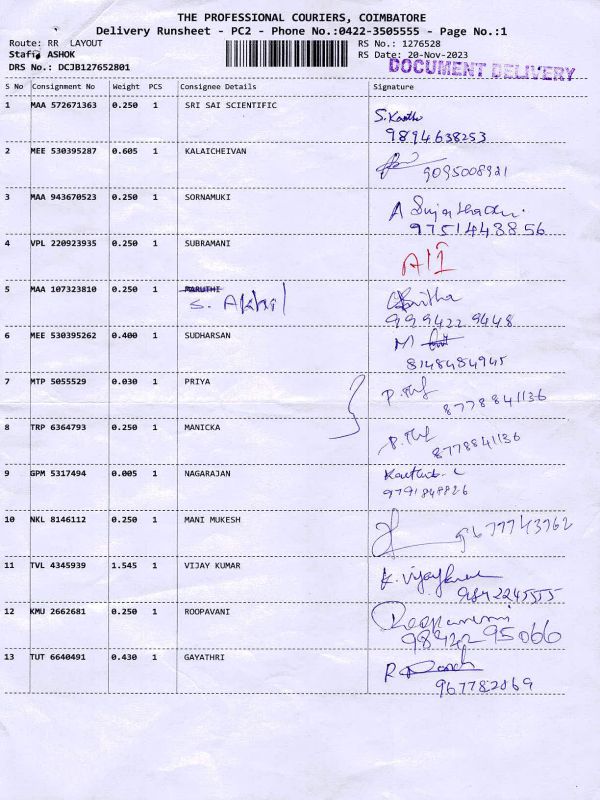 THE PROFESSIONAL COURIERS, COIMBATORE
Delivery Runsheet - PC2 - Phone No.:0422-3505555 - Page No.:1
Route: RR LAYOUT RS No.: 1276528
Staff: ASHOK RS Date: 20-Nov-2023
DRS No.: DCJB127652801 DOCUMENT DELIVERY
S No Consignment No Weight PCS Consignee Details Signature
1 MAA 572671363 0.250 1 SRI SAI SCIENTIFIC
9894638253
2 MEE 530395287 0.605 1 KALAICHEIVAN
9095008921
3 MAA 943670523 0.250 1 SORNAMUKI
9751448856
4 VPL 220923935 0.250 1 SUBRAMANI
5 MAA 107323810 0.250 1 MARUTHI
S. Akhil
999422 9448
6 MEE 530395262 0.400 1 SUDHARSAN M
8148484945
7 MTP 5055529 0.030 1 PRIYA
8778841136
8 TRP 6364793 0.250 1 MANICKA
8778841136
9 GPM 5317494 0.005 1 NAGARAJAN
9791848826
10 NKL 8146112 0.250 1 MANI MUKESH
9677743762
11 TVL 4345939 1.545 1 VIJAY KUMAR
K. Vijaykumar
9842245555
12 KMU 2662681 0.250 1 ROOPAVANI
98422 95066
13 TUT 6640491 0.430 1 GAYATHRI
967782869